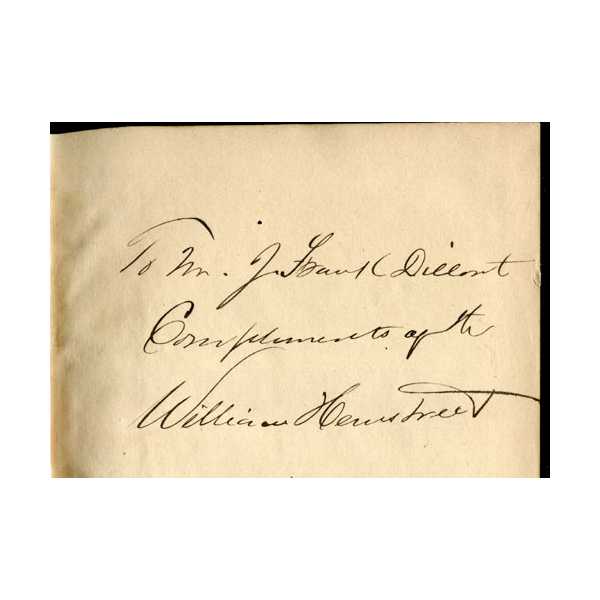 To Mr. J. Frank Dillont
Compliments of the
William Hemstreet